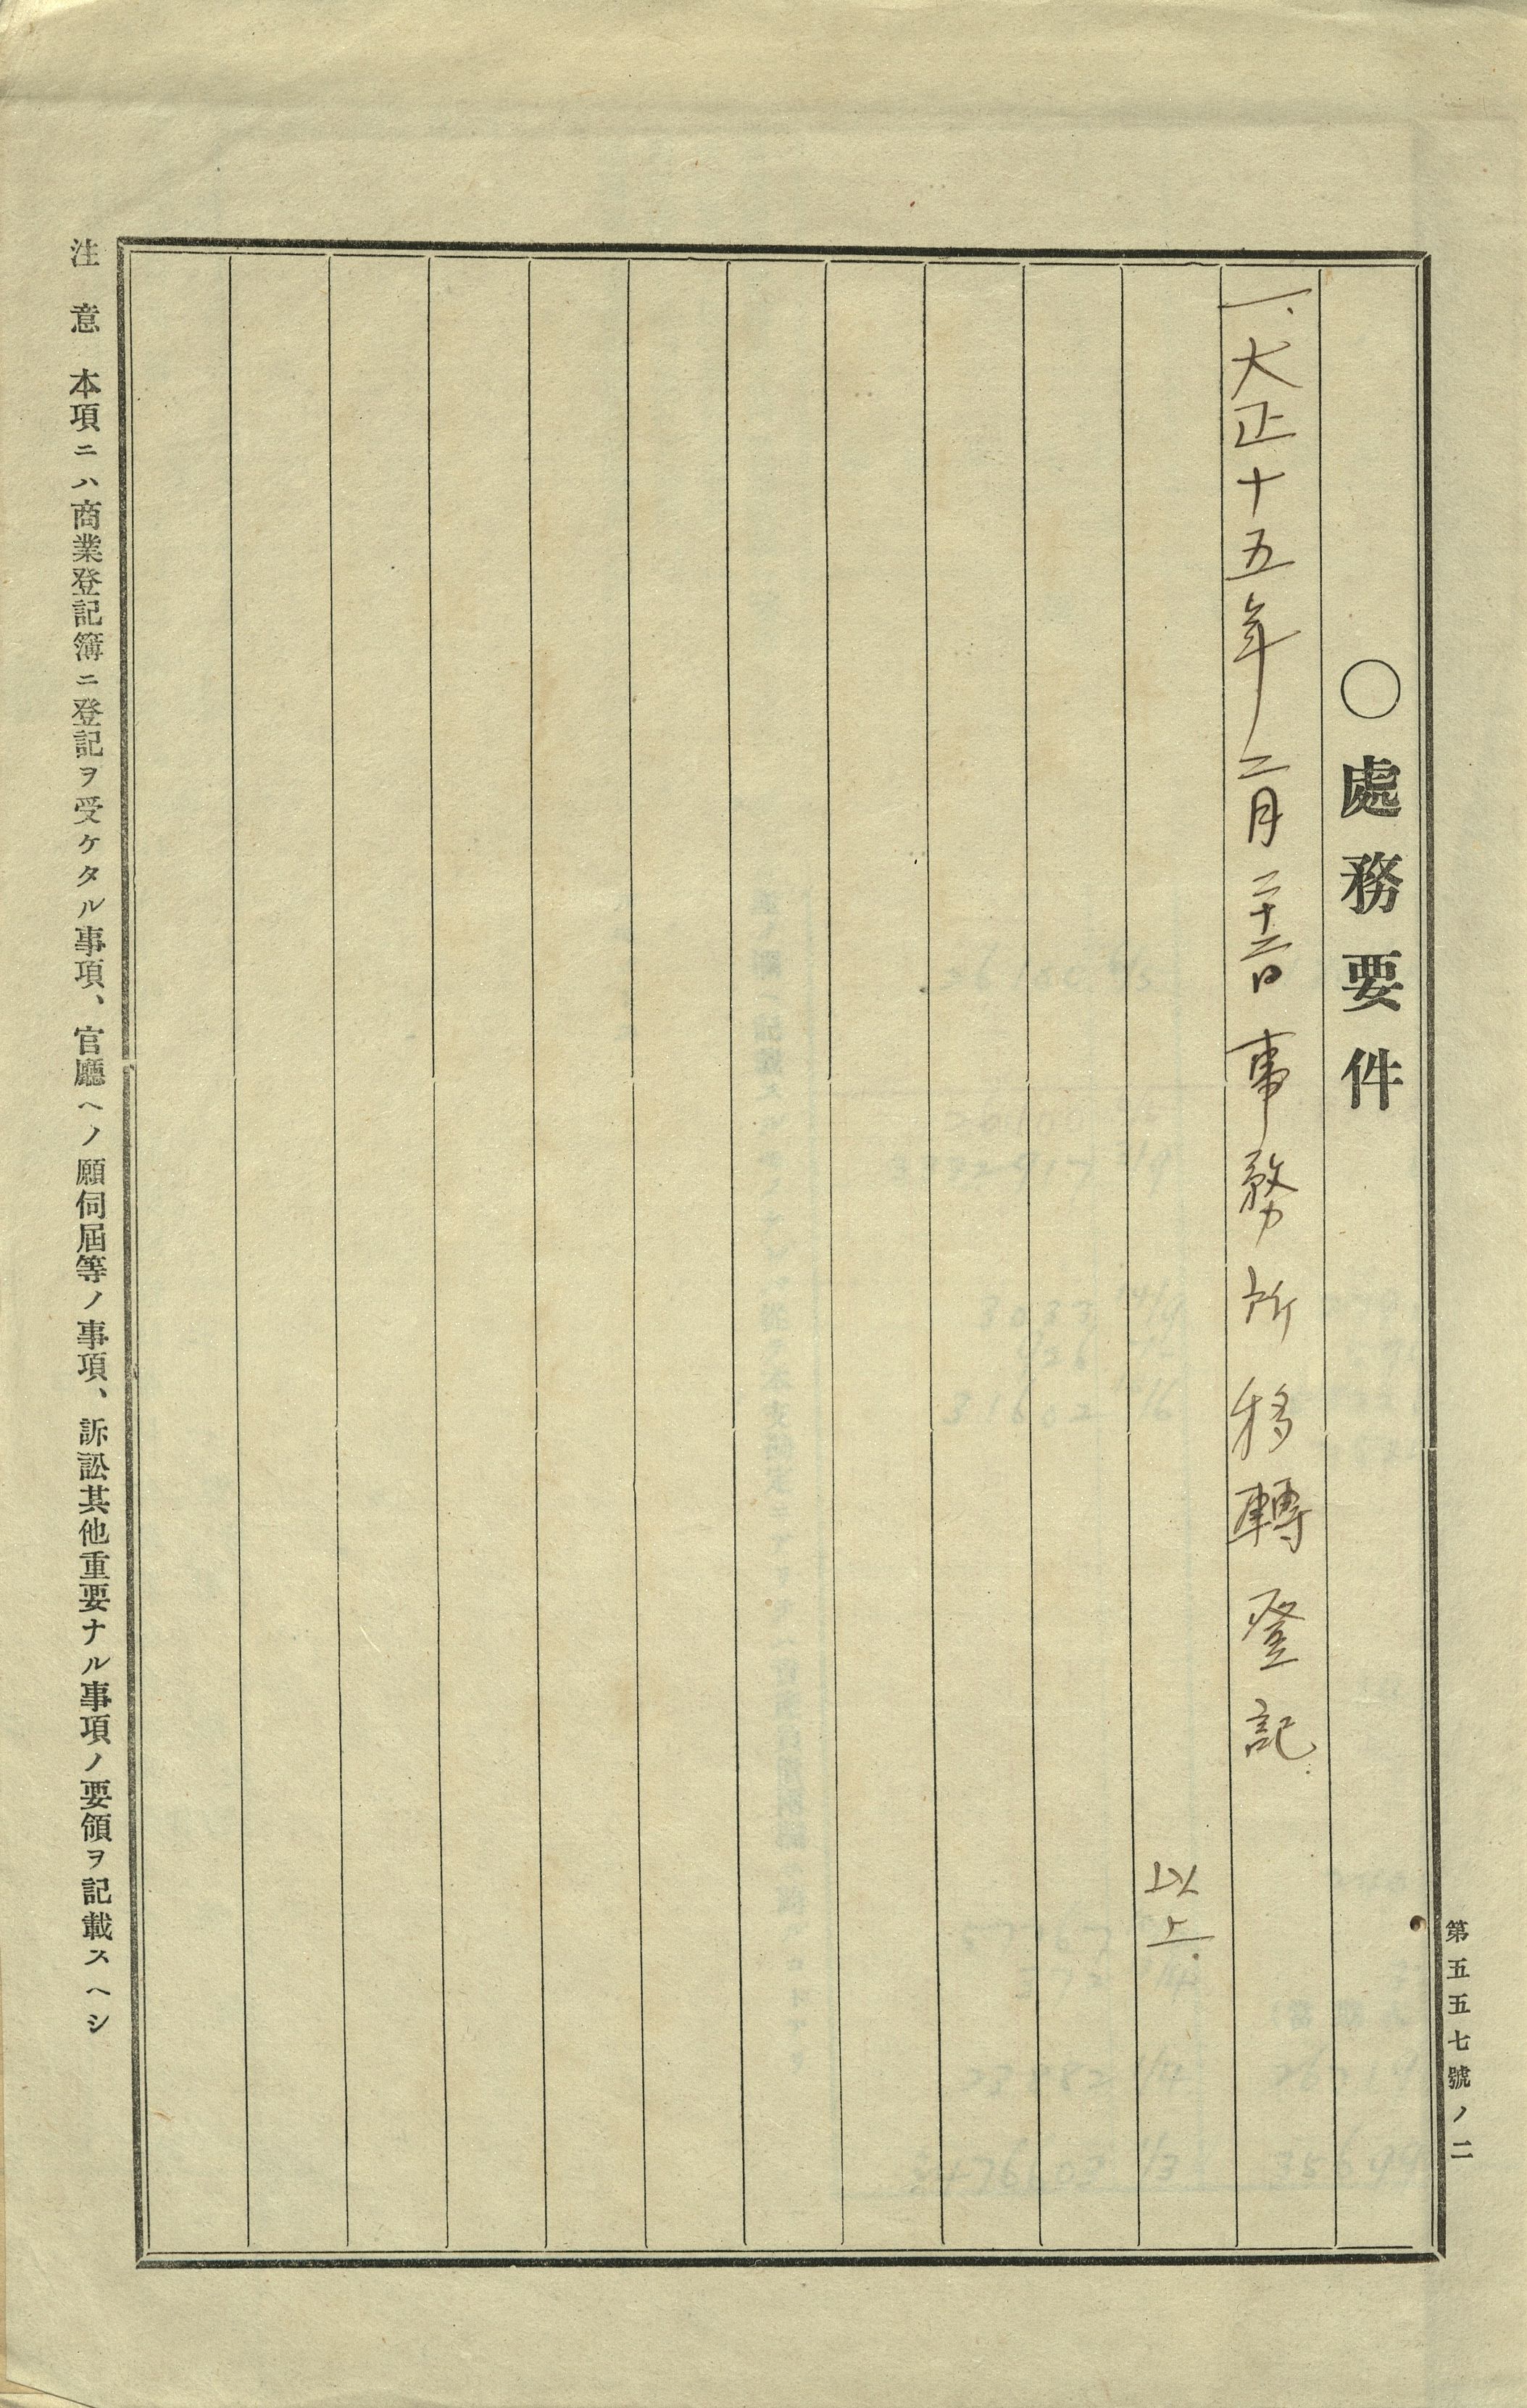 第五五七號ノ二
○處務要件
一、大正十五年二月二十二日事務所移轉登記
以上
注意 本項ニハ商業登記簿ニ登記ヲ受ケタル事項、官廳ヘノ願伺屆等ノ事項、訴訟其他重要ナル事項ノ要領ヲ記載スヘシ